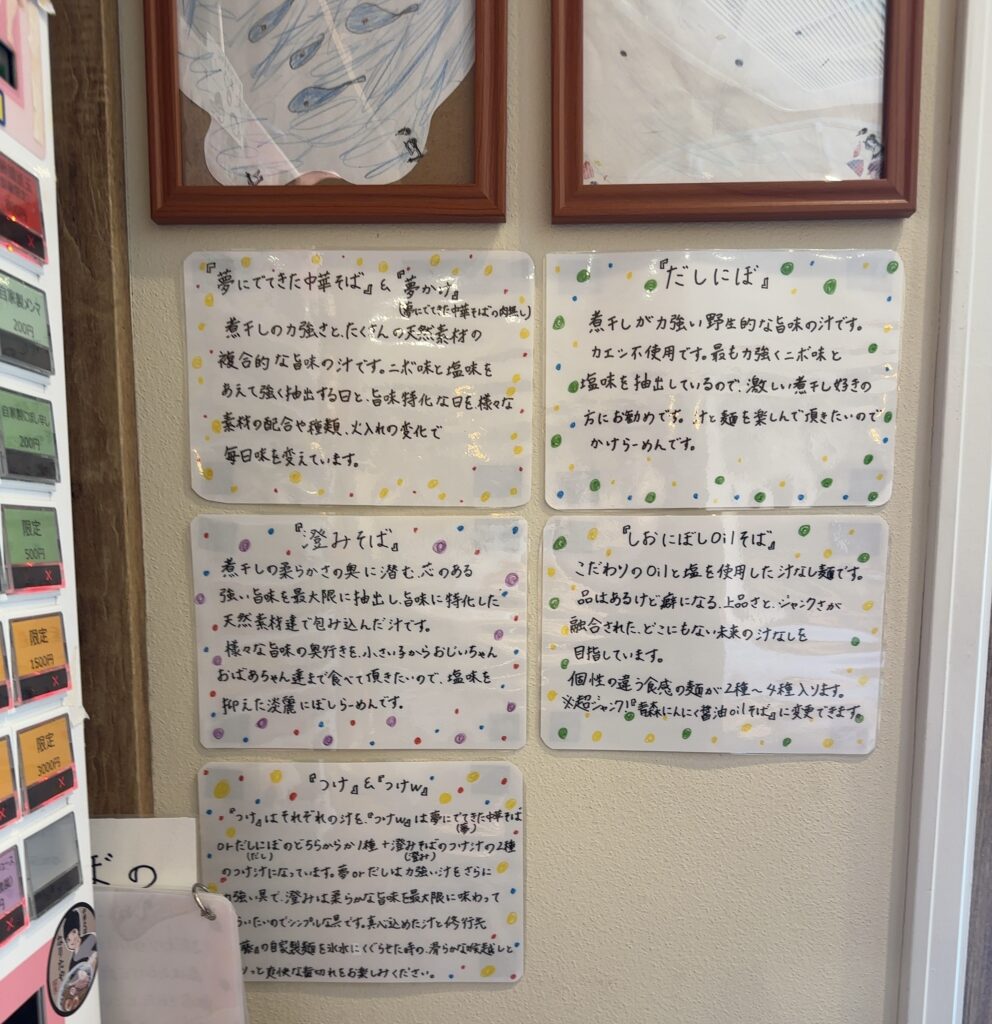 『夢にでてきた中華そば』&『夢かけ』
(夢にでてきた中華そばの肉無し)
煮干しの力強さと、たくさんの天然素材の
複合的な旨味の汁です。ニボ味と塩味を
あえて強く抽出する日と、旨味特化な日を、様々な
素材の配合や種類、火入れの変化で
毎日味を変えています。
『だしにぼ』
煮干しが力強い野生的な旨味の汁です。
カエシ不使用です。最も力強くニボ味と
塩味を抽出しているので、激しい煮干し好きの
方にお勧めです。汁と麺を楽しんで頂きたいので
かけらーめんです。
『澄みそば』
煮干しの柔らかさの奥に潜む、芯のある
強い旨味を最大限に抽出し、旨味に特化した
天然素材達で包み込んだ汁です。
様々な旨味の奥行きを、小さい子からおじいちゃん
おばあちゃん達まで食べて頂きたいので、塩味を
抑えた淡麗にぼしらーめんです。
『しおにぼしOilそば』
こだわりのOilと塩を使用した汁なし麺です。
品はあるけど癖になる、上品さと、ジャンクさが
融合された、どこにもない未来の汁なしを
目指しています。
個性の違う食感の麺が2種〜4種入ります。
※超ジャンク!『青森にんにく醤油oilそば』に変更できます。
『つけ』&『つけw』
『つけ』はそれぞれの汁を、『つけw』は夢にでてきた中華そば
(夢)
orだしにぼのどちらからか1種+澄みそばのつけ汁の2種
(だし) (澄み)
のつけ汁になっています。夢orだしは力強い汁をさらに
力強い具で、澄みは柔らかな旨味を最大限に味わって
らいたいのでシンプルな具です。真心込めた汁と修行先
』の自家製麺を氷水にくぐらせた時の、滑らかな喉越しと
っと爽快な歯切れをお楽しみください。
自家製メンマ
200円
200円
限定
500円
限定
1500円
限定
3000円
ぼの